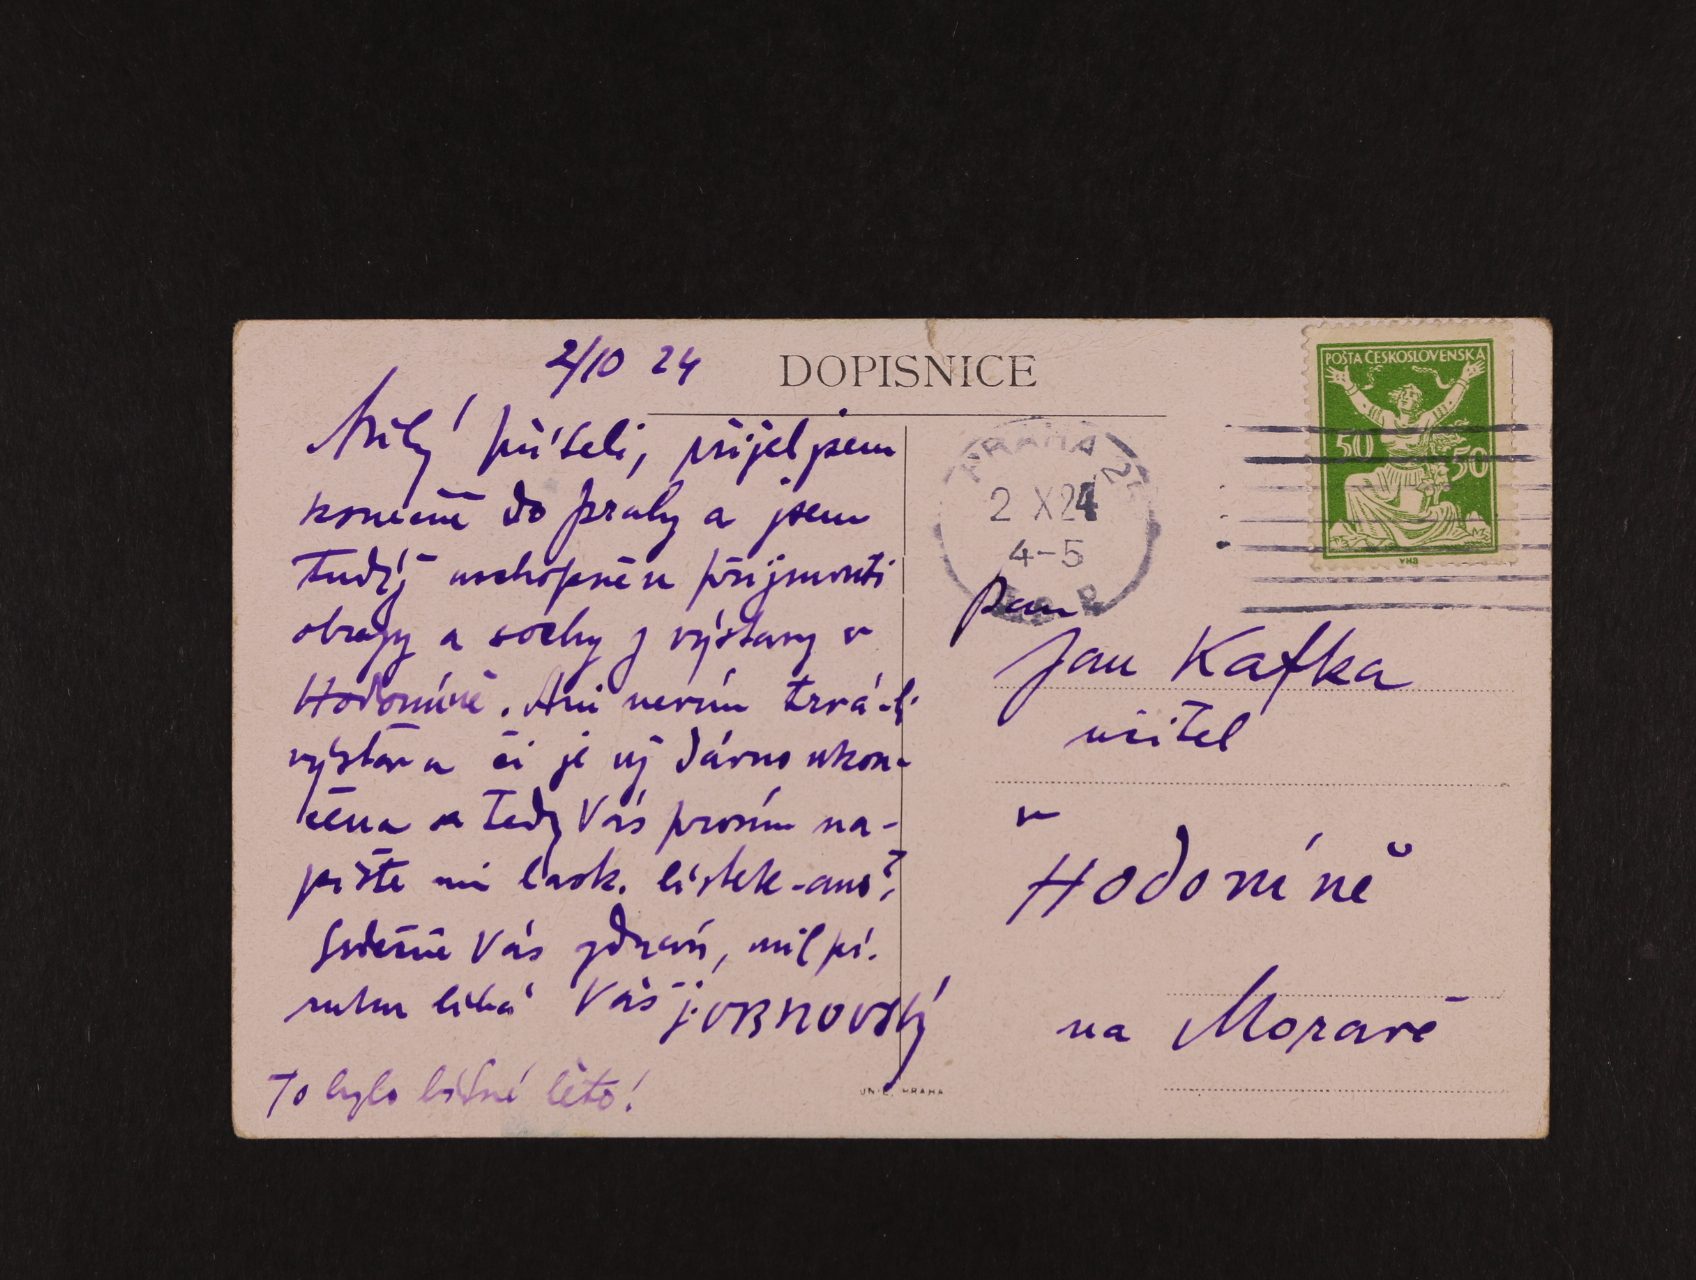 2/10 24
DOPISNICE
Milý příteli, přijel jsem
konečně do Prahy a jsem
tudíž uschopněn přijmouti
obrazy a sochy z výstavy v
Hodoníně. Ani nevím trvá-li
výstava či je už dávno ukon-
čena a tedy Vás prosím na-
pište mi lask. lístek - ano?
Srdečně Vás zdraví, mil. př.
ruku líbá Váš
To bylo bídné léto!
POŠTA ČESKOSLOVENSKÁ
50 50
PRAHA
2 X 24
4-5
Pan
Jan Kafka
učitel
v
Hodoníně
na Moravě
UNIE, PRAHA